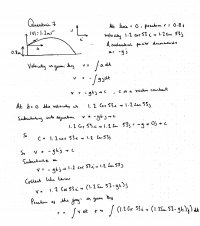 Question 7
|v| = 1.2 ms⁻¹
0.8m
At time = 0, position r = 0.8j
Velocity 1.2 cos 53 i + 1.2 sin 53 j
Acceleration points downwards
a = -gj
Velocity is given by v = ∫ a dt
v = -∫ gj dt
v = -gtj + c, c is a vector constant
At t = 0 the velocity is 1.2 cos 53 i + 1.2 sin 53 j
Substituting into equation v = -gtj + c
1.2 cos 53 i + 1.2 sin 53 j = -g × 0j + c
So c = 1.2 cos 53 i + 1.2 sin 53 j
So v = -gtj + c
Substitute in
v = -gtj + 1.2 cos 53 i + 1.2 sin 53 j
Collect like terms
v = 1.2 cos 53 i + (1.2 sin 53 - gt)j
Position of the is given by
r = ∫ v dt r = ∫ (1.2 cos 53 i + (1.2 sin 53 - gt)j) dt